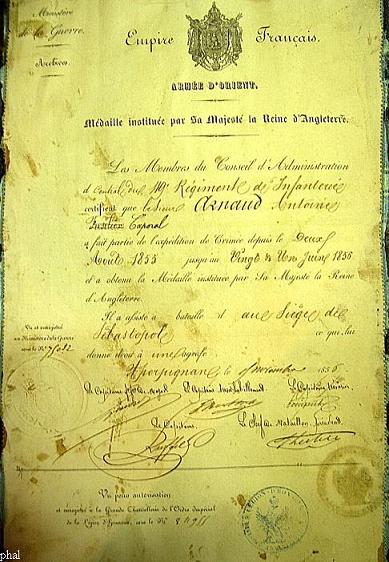 Ministère
de la Guerre.
Archives.
Empire Français.
ARMÉE D'ORIENT.
Médaille instituée par Sa Majesté la Reine d'Angleterre.
Les Membres du Conseil d'Administration
Central du 49e Régiment de Infanterie
certifient que le Sieur Arnaud Antoine
Fusilier Caporal
a fait partie de l'expédition de Crimée depuis le Deux
Août 1855 jusqu'au Vingt & Un Juin 1856
et a obtenu la Médaille instituée par Sa Majesté la Reine
d'Angleterre.
Il a assisté à bataille d au Siège de
Sébastopol ce qui lui
donne droit à une agrafe
A Perpignan, le novembre 1856
Vu et enregistré
au Ministère de la Guerre
sous le No
Le Capitaine Le Capitaine Le Capitaine
Le Capitaine Le Chef de Bataillon
Vu pour autorisation
et enregistré à la Grande Chancellerie de l'Ordre Impérial
de la Légion d'Honneur, sous le No
phal